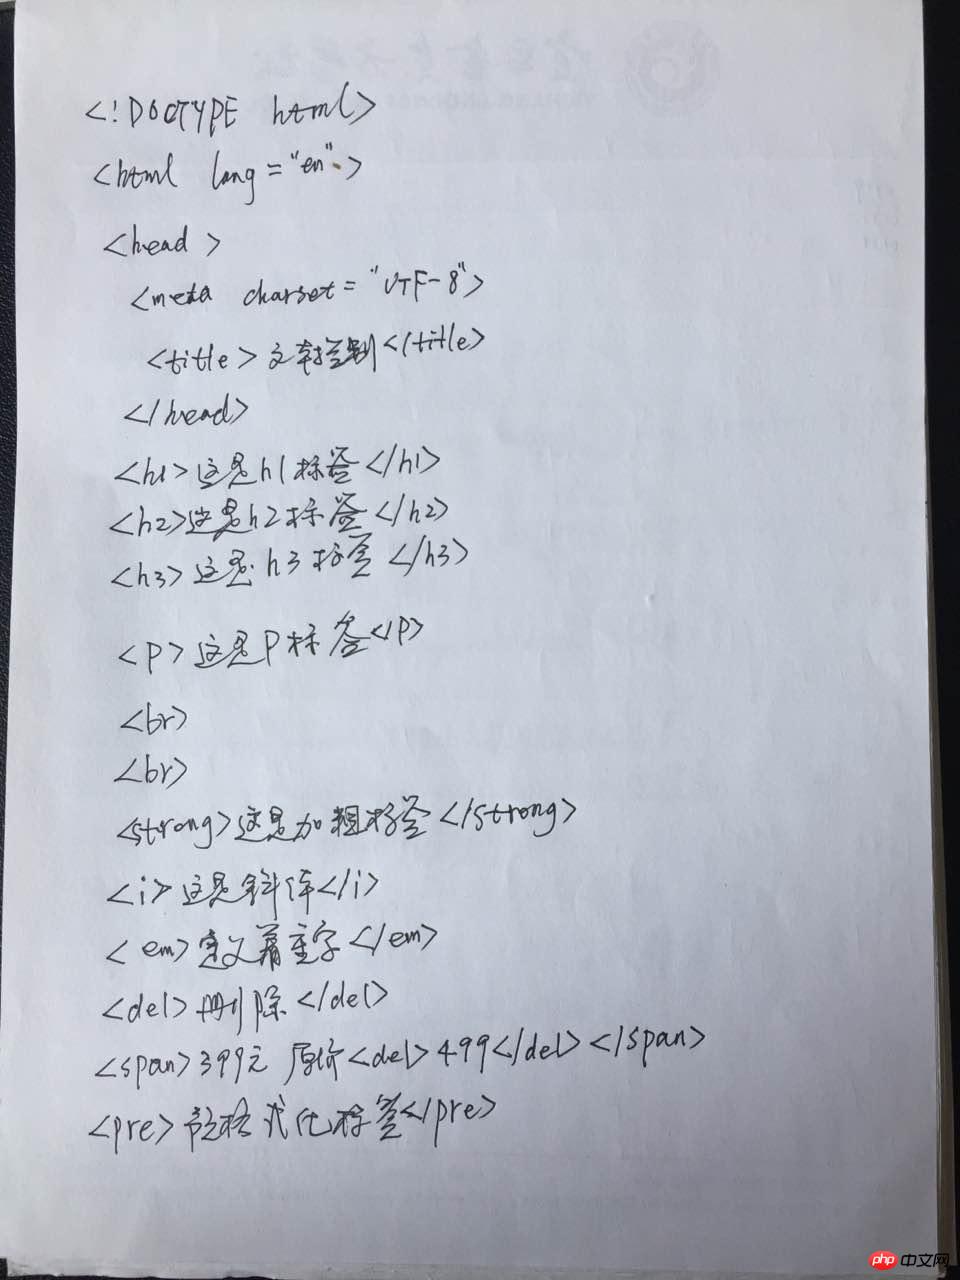 <!DOCTYPE html>
<html lang="en">
<head>
<meta charset="UTF-8">
<title>文本控制</title>
</head>
<h1>这是h1标签</h1>
<h2>这是h2标签</h2>
<h3>这是h3标签</h3>
<p>这是P标签</p>
<br>
<br>
<strong>这是加粗标签</strong>
<i>这是斜体</i>
<em>定义着重字</em>
<del>删除</del>
<span>399元 原价<del>499</del></span>
<pre>预格式化标签</pre>
php 中文网